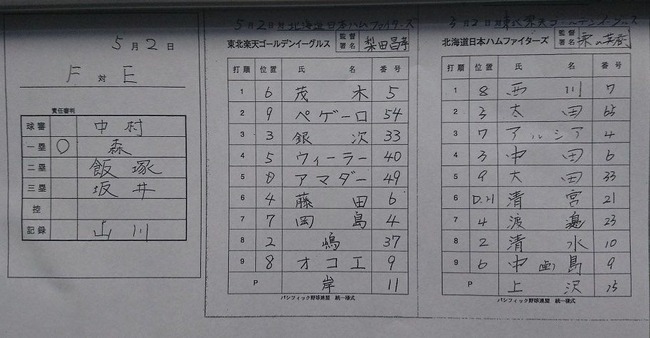 5月2日
F 対 E
責任審判
球審 中村
一塁 ○ 森
二塁 飯塚
三塁 坂井
控
記録 山川
5月2日 北海道日本ハムファイターズ
東北楽天ゴールデンイーグルス 監督署名 梨田昌孝
打順 位置 氏名 番号
1 6 茂木 5
2 9 ペゲーロ 54
3 3 銀次 33
4 5 ウィーラー 40
5 D アマダー 49
6 4 藤田 6
7 7 岡島 4
8 2 嶋 37
9 8 オコエ 9
P 岸 11
パシフィック野球連盟 統一様式
5月2日 東北楽天ゴールデンイーグルス
北海道日本ハムファイターズ 監督署名
打順 位置 氏名 番号
1 8 西川 7
2 5 太田
3 7 アルシア 4
4 3 中田 6
5 9 大田 33
6 D.H 清宮 21
7 4 渡邉 23
8 2 清水 10
9 6 中島 9
P 上沢
パシフィック野球連盟 統一様式